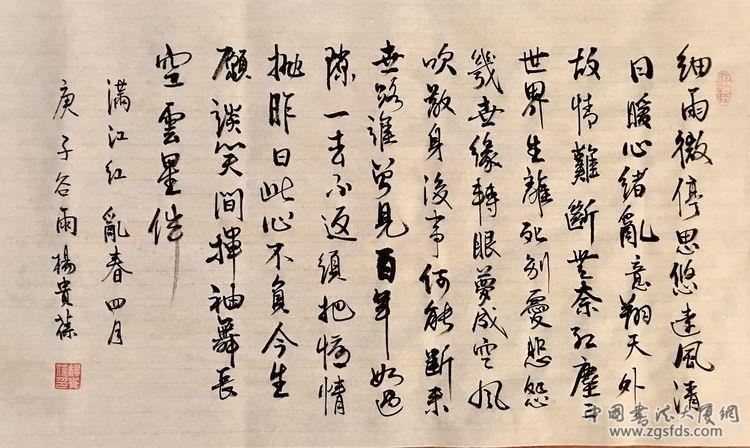 細雨微停思悠遠風清
日暖心緒亂意翔天外
故情難斷無奈紅塵三
世界生離死別憂悲怨
幾世緣轉眼夢成空風
吹散身後事何能斷來
世路誰曾見百年如過
隙一去不返須把情
拋昨日此心不負今生
願談笑間揮袖舞長
空雲星伴
滿江紅 亂春四月
庚子谷雨楊貴葆
中国书法大厦网
www.zgsfds.com